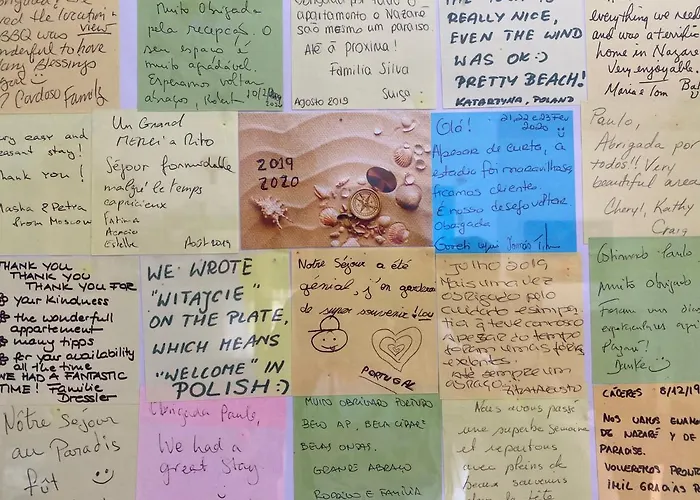 red the location
BBQ was view
wonderful to have
many Blessings
Cardoso Family
Muito Obrigada
pela recepção. O
seu espaço é
muito agradável.
Esperamos voltar
abraços, Robert
apartamento o Nazaré
são mesmo um paraíso
Até à proxima!
Familia Silva
Agosto 2019 Suiça
REALLY NICE,
EVEN THE WIND
WAS OK :)
PRETTY BEACH!
KATARZYNA, POLAND
everything we need
and was a terrific
home in Nazare
Very enjoyable.
Maria e Tom
very easy and
pleasant stay!
Thank you!
Masha & Petra
from Moscow
Un Grand
MERCI a Rito
Séjour formidable
malgré le temps
capricieux
Fatima
Acacio
Estelle Août 2019
2019
2020
Olá! 21, 22 e 23 Fev
2020
Apesar de curta, a
estadia foi maravilhosa
ficamos clientes.
É nosso desejo voltar
Obrigada
Paulo,
Abrigada por
todos!! Very
beautiful area
Cheryl, Kathy
Craig
THANK YOU
THANK YOU
THANK YOU FOR
your Kindness
the wonderfull
appartement
many tipps
for your availability
all the time
WE HAD A FANTASTIC
TIME! Familie
Dressler
WE WROTE
"WITAJCIE"
ON THE PLATE,
WHICH MEANS
"WELCOME" IN
POLISH :)
Notre Séjour a été
génial, j'en garderai
de super souvenir
PORTUGAL
Julho 2019
Mais uma vez
obrigado pelo
cuidado e simpa
tia que teve connosco
Apesar do tempo
foram umas férias
Até sempre um
abraço
Obrigado Paulo,
Muito Obrigado
Foram uns dias
espetaculares aqui
Danke
Nôtre Sejour
au Paradis
fût
Obrigada Paulo,
We had a
great stay.
MUITO OBRIGADO PORTUGAL
BELO AP, BELA CIDADE
BELAS ONDAS.
GRANDE ABRAÇO
RODRIGO E FAMILIA
Nous avons passé
une superbe semaine
et repartons
avec pleins de
beaux souvenirs
dans la tête
CÁCERES 8/12/19
NOS VAMOS
DE NAZARÉ Y DE
PARAISE.
VOLVEREMOS PRONTO
¡MIL GRACIAS